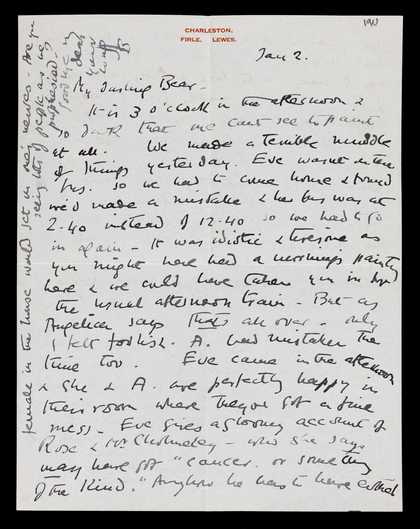 CHARLESTON.
FIRLE, LEWES.
Jan 2.
My Darling Bear -
It is 3 o'clock in the afternoon &
so dark that we cant see to paint
at all. We made a terrible muddle
of things yesterday. Eve wasnt in the
bus. so we had to come home & found
we'd made a mistake & her bus was at
2-40 instead of 12-40 so we had to go
in again - It was idiotic & tiresome as
you might have had a mornings painting
here & we could have taken you in for
the usual afternoon train - But as
Angelica says thats all over - only
I felt foolish. A. had mistaken the
time too. Eve came in the afternoon
& she & A. are perfectly happy in
their room where theyve got a fine
mess. Eve gives a gloomy account of
Rose & Mr Cholmeley - who she says
may have got "cancer or something
of the kind." Anyhow he has to have
female in the house would set on their nerves - Are you
seeing lots of people as we